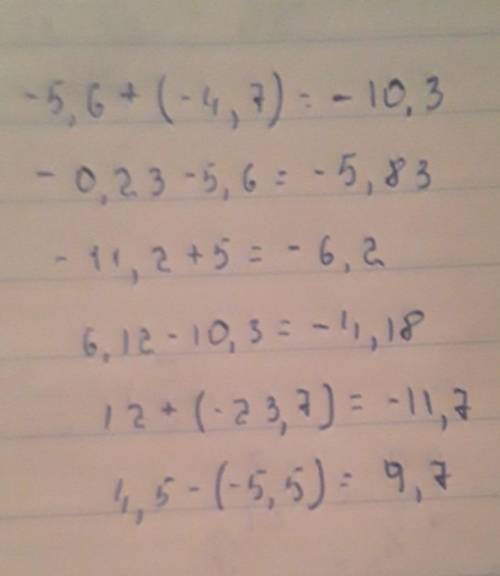 -5,6 + (-4,7) = -10,3
-0,23 - 5,6 = -5,83
-11,2 + 5 = -6,2
6,12 - 10,3 = -4,18
12 + (-23,7) = -11,7
4,5 - (-5,5) = 9,7